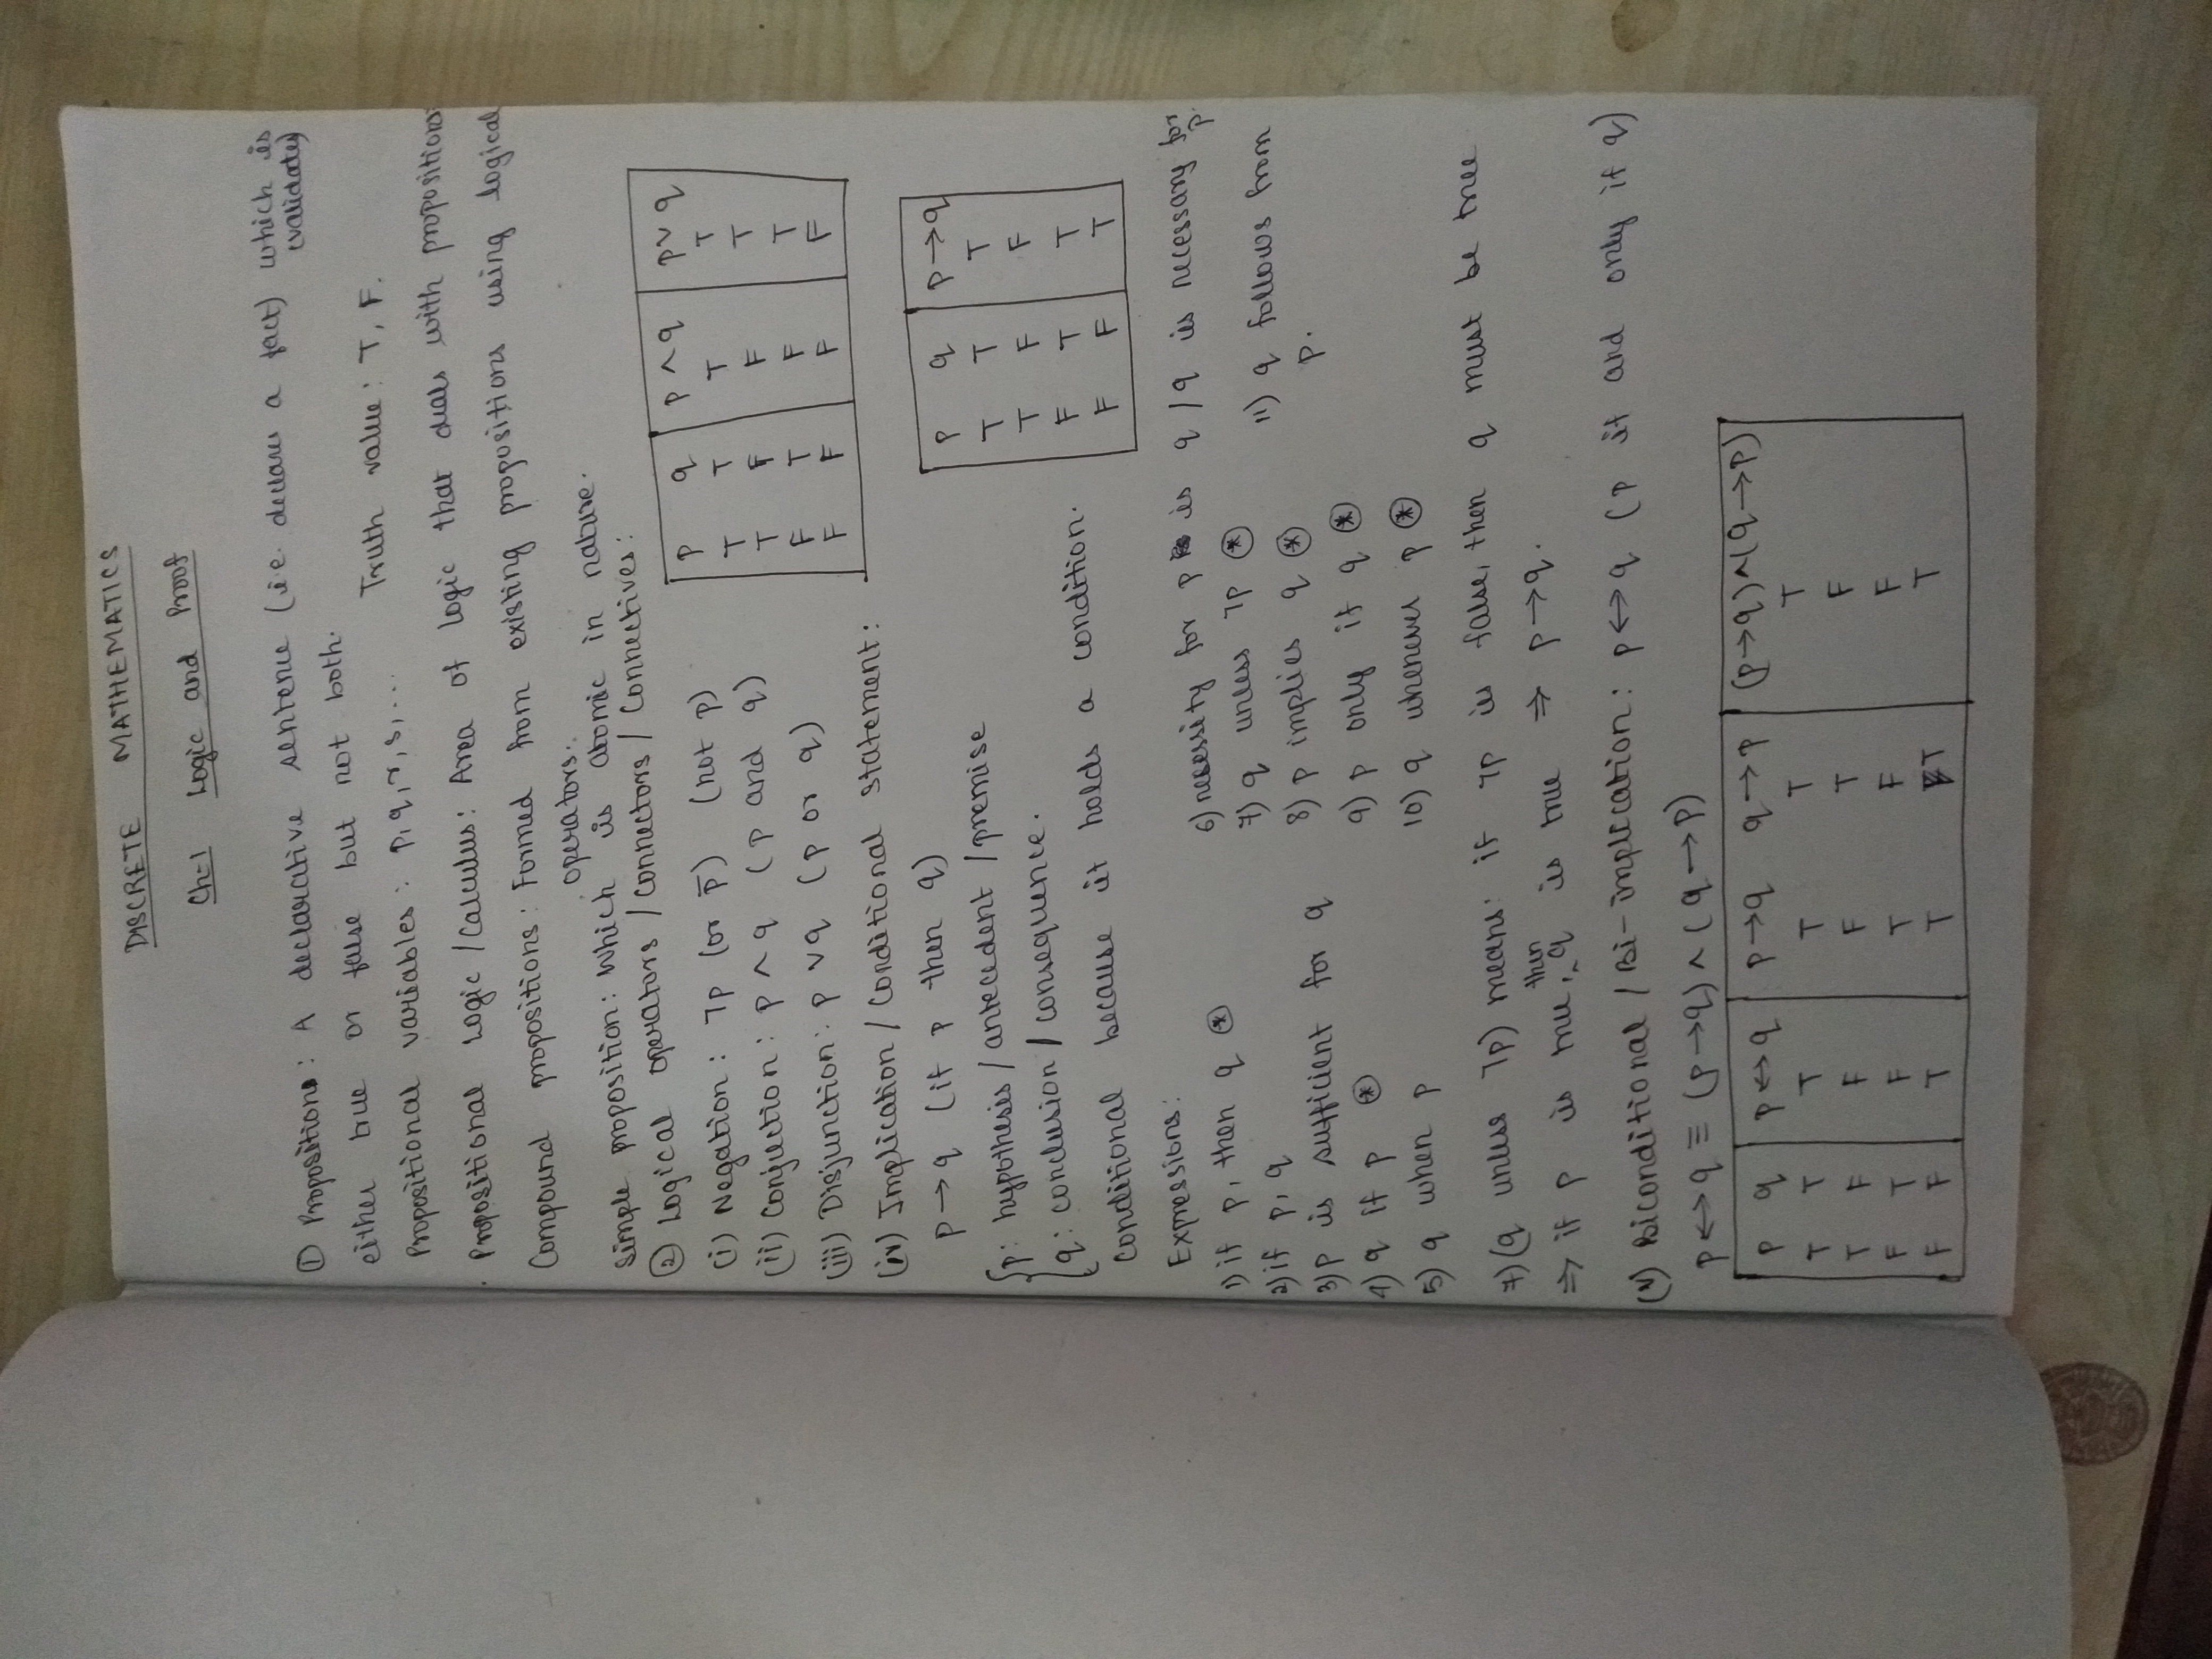 DISCRETE MATHEMATICS
Ch-1 Logic and Proof
① Propositions: A declarative sentence (i.e. declares a fact) which is
(validates)
either true or false but not both.
Propositional variables: p, q, r, s, ... Truth value: T, F.
Propositional Logic / Calculus: Area of logic that deals with propositions.
Compound propositions: Formed from existing propositions using logical
operators.
Simple proposition: Which is atomic in nature.
② Logical operators / Connectors / Connectives:
(i) Negation: ¬p (or p̄) (not p)
(ii) Conjuction: p ∧ q (p and q)
(iii) Disjunction: p ∨ q (p or q)
p q p ∧ q p ∨ q
T T T T
T F F T
F T F T
F F F F
(iv) Implication / Conditional statement:
p → q (if p then q)
{p: hypothesis / antecedent / premise
q: conclusion / consequence.
Conditional because it holds a condition.
p q p → q
T T T
T F F
F T T
F F T
Expressions:
1) if p, then q ⊛
2) if p, q
3) p is sufficient for q
4) q if p ⊛
5) q when p
6) necessity for p is q / q is necessary for
p.
7) q unless ¬p ⊛
8) p implies q ⊛
9) p only if q ⊛
10) q whenever p ⊛
11) q follows from
p.
7) (q unless ¬p) means: if ¬p is false, then q must be true
⇒ if p is true, then q is true ⇒ p → q.
(v) Biconditional / Bi-implication: p ↔ q (p if and only if q)
p ↔ q ≡ (p → q) ∧ (q → p)
p q p ↔ q p → q q → p (p → q) ∧ (q → p)
T T T T T T
T F F F T F
F T F T F F
F F T T T T